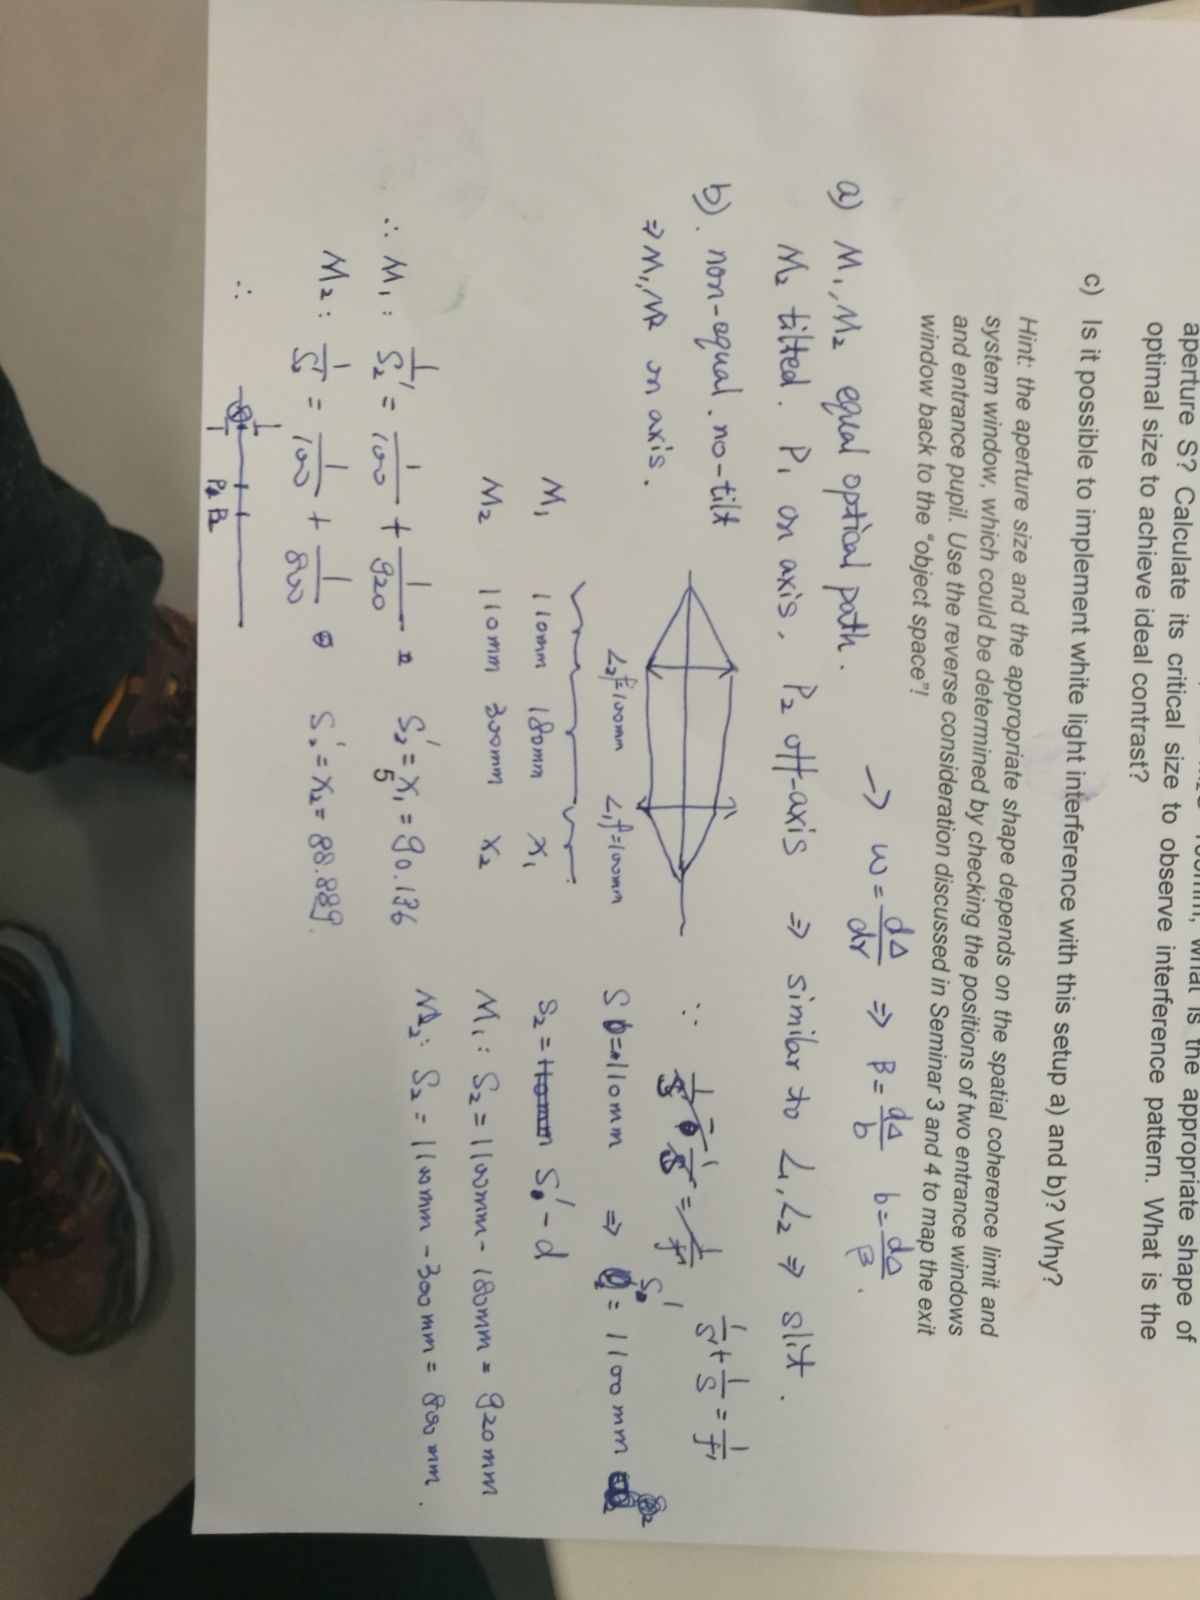 aperture S? Calculate its critical size to observe interference pattern. What is the
optimal size to achieve ideal contrast?
c) Is it possible to implement white light interference with this setup a) and b)? Why?
Hint: the aperture size and the appropriate shape depends on the spatial coherence limit and
system window, which could be determined by checking the positions of two entrance windows
and entrance pupil. Use the reverse consideration discussed in Seminar 3 and 4 to map the exit
window back to the "object space"!
a) M₁, M₂ equal optical path. → w = dΔ/dr ⇒ β = dΔ/b b = dΔ/β.
M₂ tilted. P₁ on axis, P₂ off-axis ⇒ similar to L₁, L₂ ⇒ slit.
b). non-equal. no-tilt
⇒ M₁, M₂ on axis.
1/s' + 1/s = 1/f'
L₂f'=100mm L₁f'=100mm
S = 110mm ⇒ S' = 1100mm
M₁ 110mm 180mm x₁
S₂ = S' - d
M₂ 110mm 300mm x₂
M₁: S₂ = 1100mm - 180mm = 920mm
M₂: S₂ = 1100mm - 300mm = 800mm.
∴ M₁: 1/S₂' = 1/100 + 1/920 S₂' = x₁ = 90.136
M₂: 1/S₂' = 1/100 + 1/800 S₂' = x₂ = 88.889.
∴
P₁ P₂